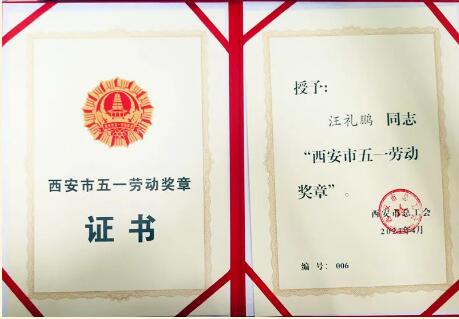 西安市五一劳动奖章
证书
授予：
汪礼鹏 同志
“西安市五一劳动
奖章”。
西安市总工会
编号：006